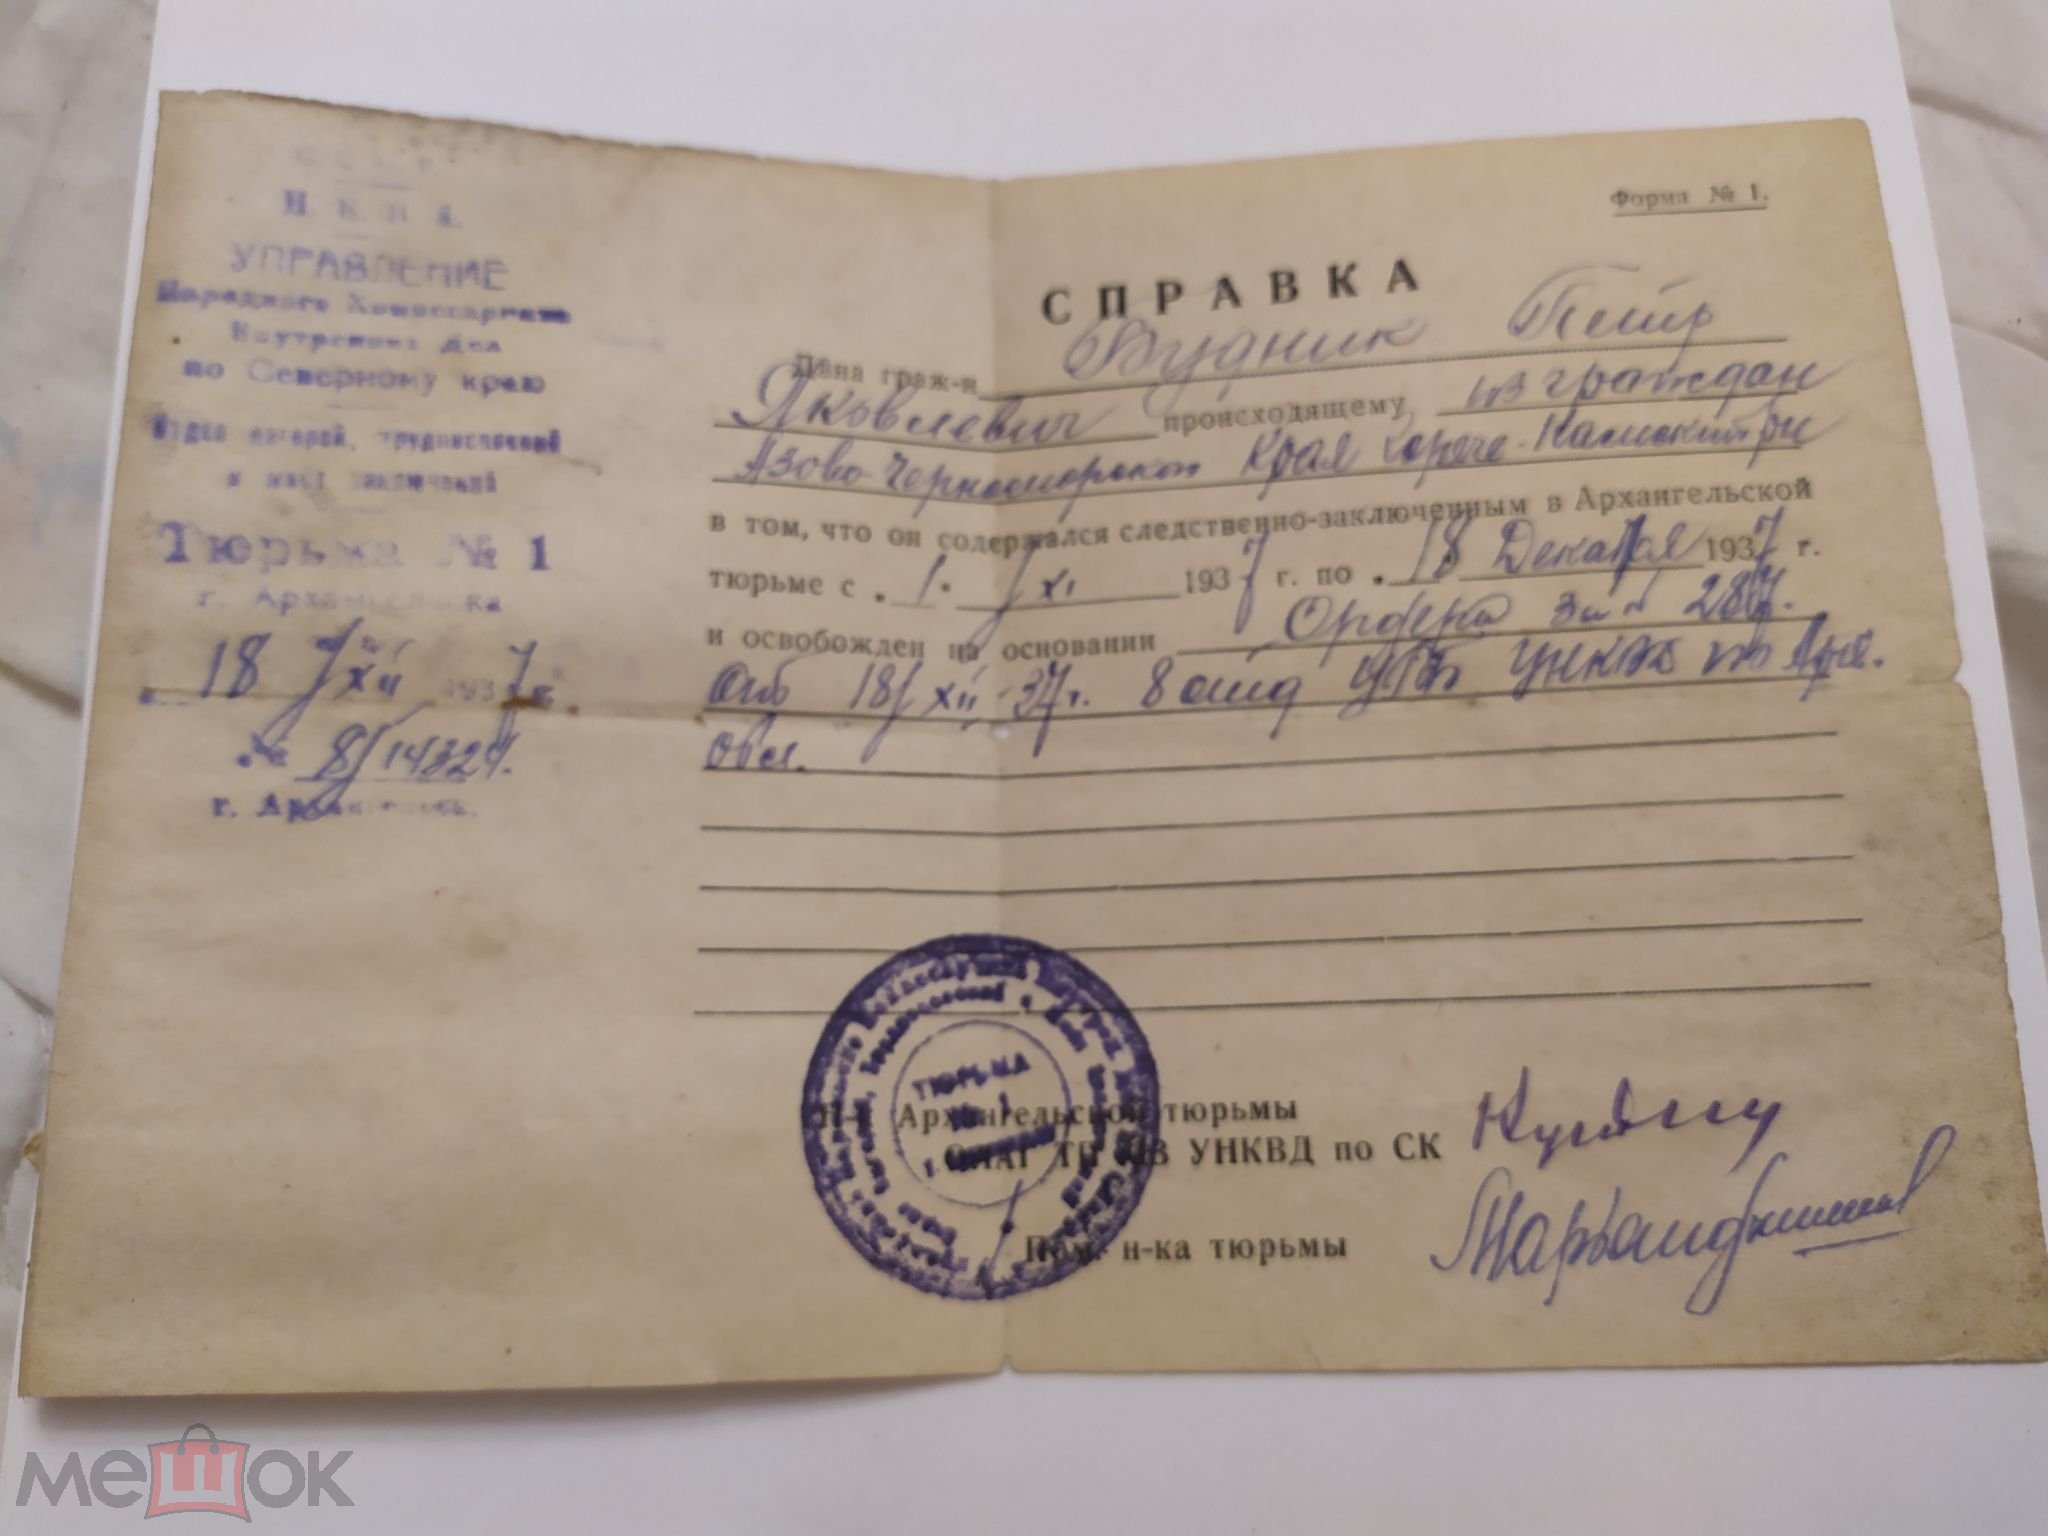 С. С. С. Р.
Н. К. В. Д.
УПРАВЛЕНИЕ
Народного Комиссариата
Внутренних Дел
по Северному краю
Отдел лагерей, трудпоселений
и мест заключений
Тюрьма № 1
г. Архангельска
18/XII 1937 г.
№ 8/14324.
г. Архангельск.
Форма № 1.
СПРАВКА
Дана граж-н Будник Петр
Яковлевич происходящему из граждан
Азово-Черноморского Края
в том, что он содержался следственно-заключенным в Архангельской
тюрьме с „ 1 · / XI 1937 г. по „ 18 Декабря 1937 г.
и освобожден на основании Ордера за № 287.
от 18/XII-37 г. 8 отд УГБ УНКВД по Арх.
обл.
Н-к Архангельской тюрьмы
ОЛАГ ТП МЗ УНКВД по СК
Пом. н-ка тюрьмы
ТЮРЬМА
№ 1
мешок